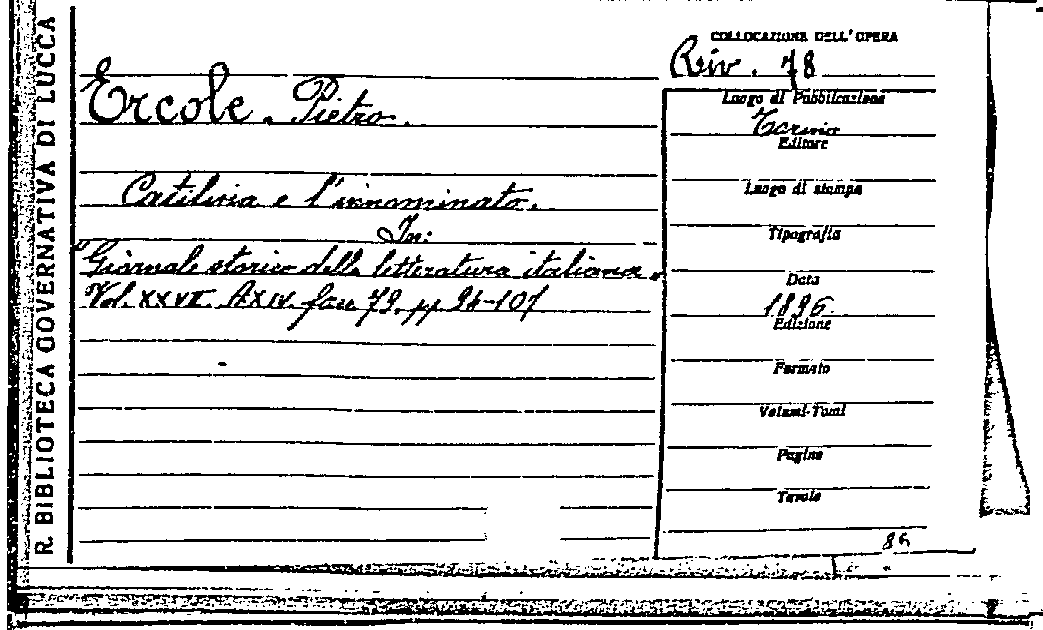 R. BIBLIOTECA GOVERNATIVA DI LUCCA
COLLOCAZIONE DELL'OPERA
Riv. 78
Ercole. Pietro.
Catilina e l'innominato.
In:
"Giornale storico della letteratura italiana".
Vol. XXVII AXIV. fasc 79. pp 94-101
Luogo di Pubblicazione
Torino
Editore
Luogo di stampa
Tipografia
Data
1896.
Edizione
Formato
Volumi-Tomi
Pagine
Tavole